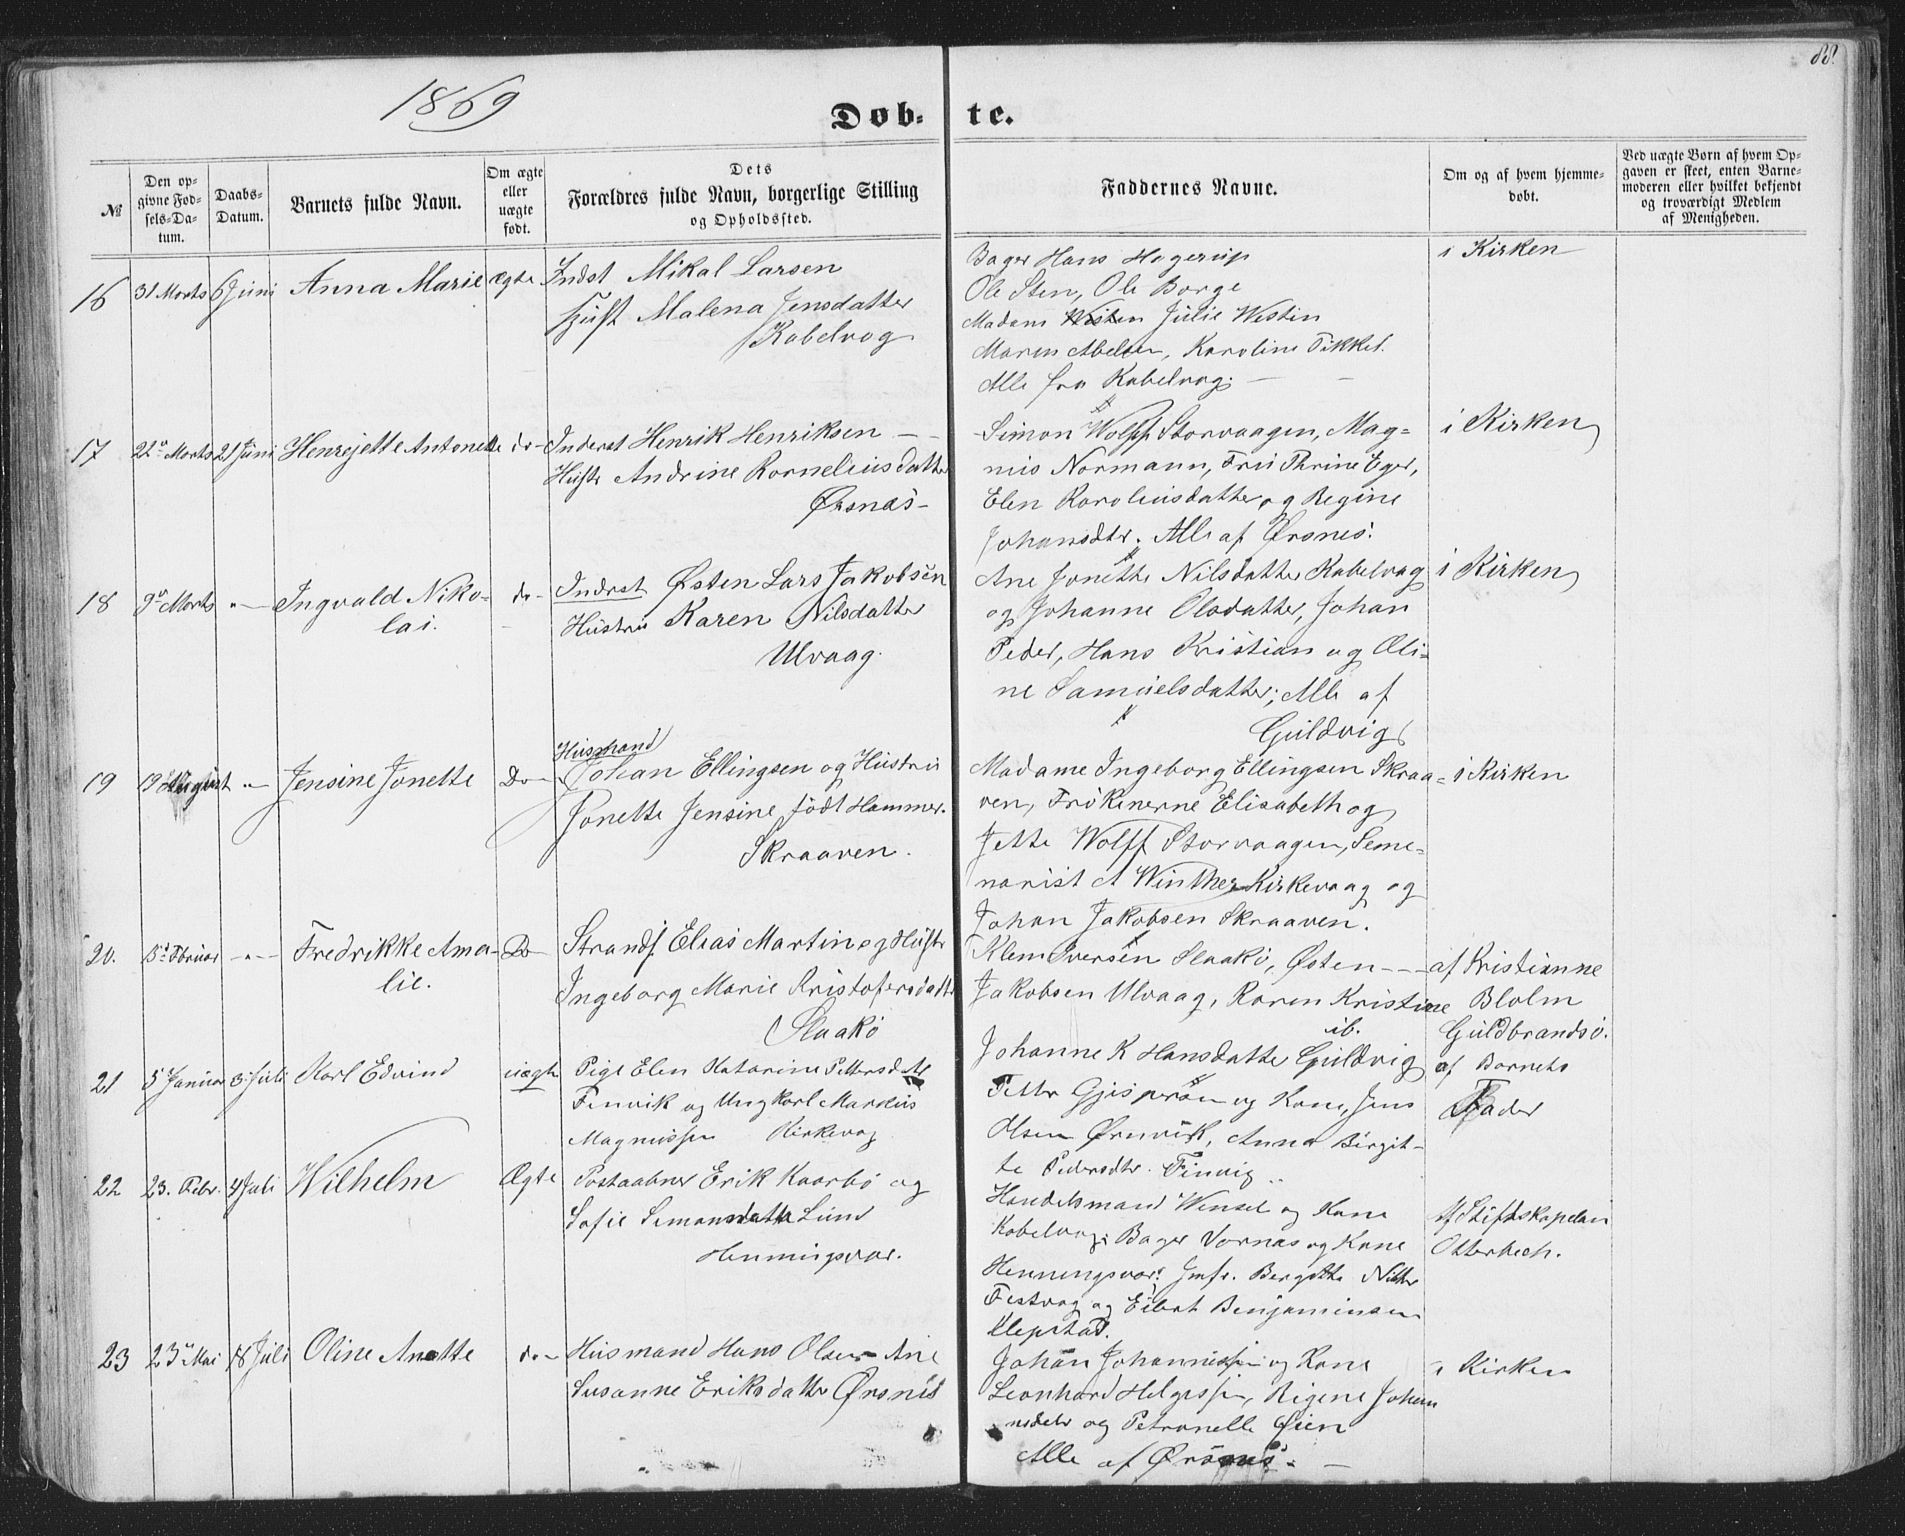 88.
1869
Døb- te.
№
Den op-
givne Fød-
sels-Da-
tum.
Daabs-
Datum.
Barnets fulde Navn.
Om ægte
eller
uægte
født.
Dets
Forældres fulde Navn, borgerlige Stilling
og Opholdssted.
Faddernes Navne.
Om og af hvem hjemme-
døbt.
Ved uægte Børn af hvem Op-
gaven er skeet, enten Barne-
moderen eller hvilket bekjendt
og troværdigt Medlem
af Menigheden.
16 31 Marts 6 Juni Anna Marie ægte
Indst Mikal Larsen
Hust Malena Jensdatter
Kabelvag
Bager Hans Hagerup
Ole Sten, Ole Borge
Madam Westen Julie Westin
Maren Abelsen, Karoline Pikkel.
Alle fra Kabelvag. —
i Kirken
17 22de Marts 21 Juni Henrejette Antonette do-
Inderst Henrik Henriksen —
Hustr Andrine Korneliusdatter
Ørsnæs-
Simon Wolff Storvaagen, Mag-
nus Normann, Fru Thrine Eger,
Elen Karoliusdatter og Regine
Johansdtr. Alle af Ørsnes.
i Kirken
18 9de Marts „— Ingvald Niko-
lai.
do-
Inderst Østen Lars Jakobsen
Hustru Karen Nilsdatter
Ulvaag.
Ane Jonette Nilsdatter Kabelvag
og Johanne Olsdatter, Johan
Peder, Hans Kristian og Oli-
ne Samuelsdatter; Alle af
Guldvig
i Kirken
19 19 August „— Jensine Jonette Do-
Husmand
Johan Ellingsen og Hustru
Jonette Jensine født Hammer.
Skraaven.
Madame Ingeborg Ellingsen Skraa-
ven, Frøkenerne Elisabeth og
Jette Wolff Storvaagen, Seme-
narist A Winther Kirkevaag og
Johan Jakobsen Skraaven.
i Kirken
20. 15de Februar —„— Fredrikke Ama-
lie.
Do
Strands. Elias Martin og Hustr
Ingeborg Marie Kristofersdatt
Slaakø
Klem Iversen Slaakø, Østen ---
Jakobsen Ulvaag, Karen Kristine
ib.
Johanne K Hansdatter Guldvig
af Kristianne
Blolm
Guldbrandsø.
21 5 Januar 3 Juli Karl Edvind uægte
Pige Elen Katarine Pettersdatt
Finvik og Ungkarl Markus
Magnussen Kirkevag
Petter Gjæsperøen og Kone, Jens
Olsen Ørnvik, Anna Birgit-
te Pedersdtr. Finvig
af Barnets
Fader
22 23. Febr. 4 Juli Wilhelm Ægte
Postaabner Erik Kaarbø og
Sofie Simonsdatter Lund
Henningsvær.
Handelsmand Wensel og Kone
Kabelvag, Bager Vornæs og Kone
Henningsvær. Jmfr. Bergitte Nilter
Festvag og Eilert Benjaminsen
Klepstad.
Af Stiftskapelan
Otterbech.
23 23de Mai 18 Juli Oline Anette do-
Husmand Hans Olsen Ane
Susanne Eriksdatter Ørsnes
Johan Johannissen og Kone
Leonhard Helgessen, Rigene Johan
nsdatr og Petronelle Øien
Alle af Ørsnes. —
i Kirken